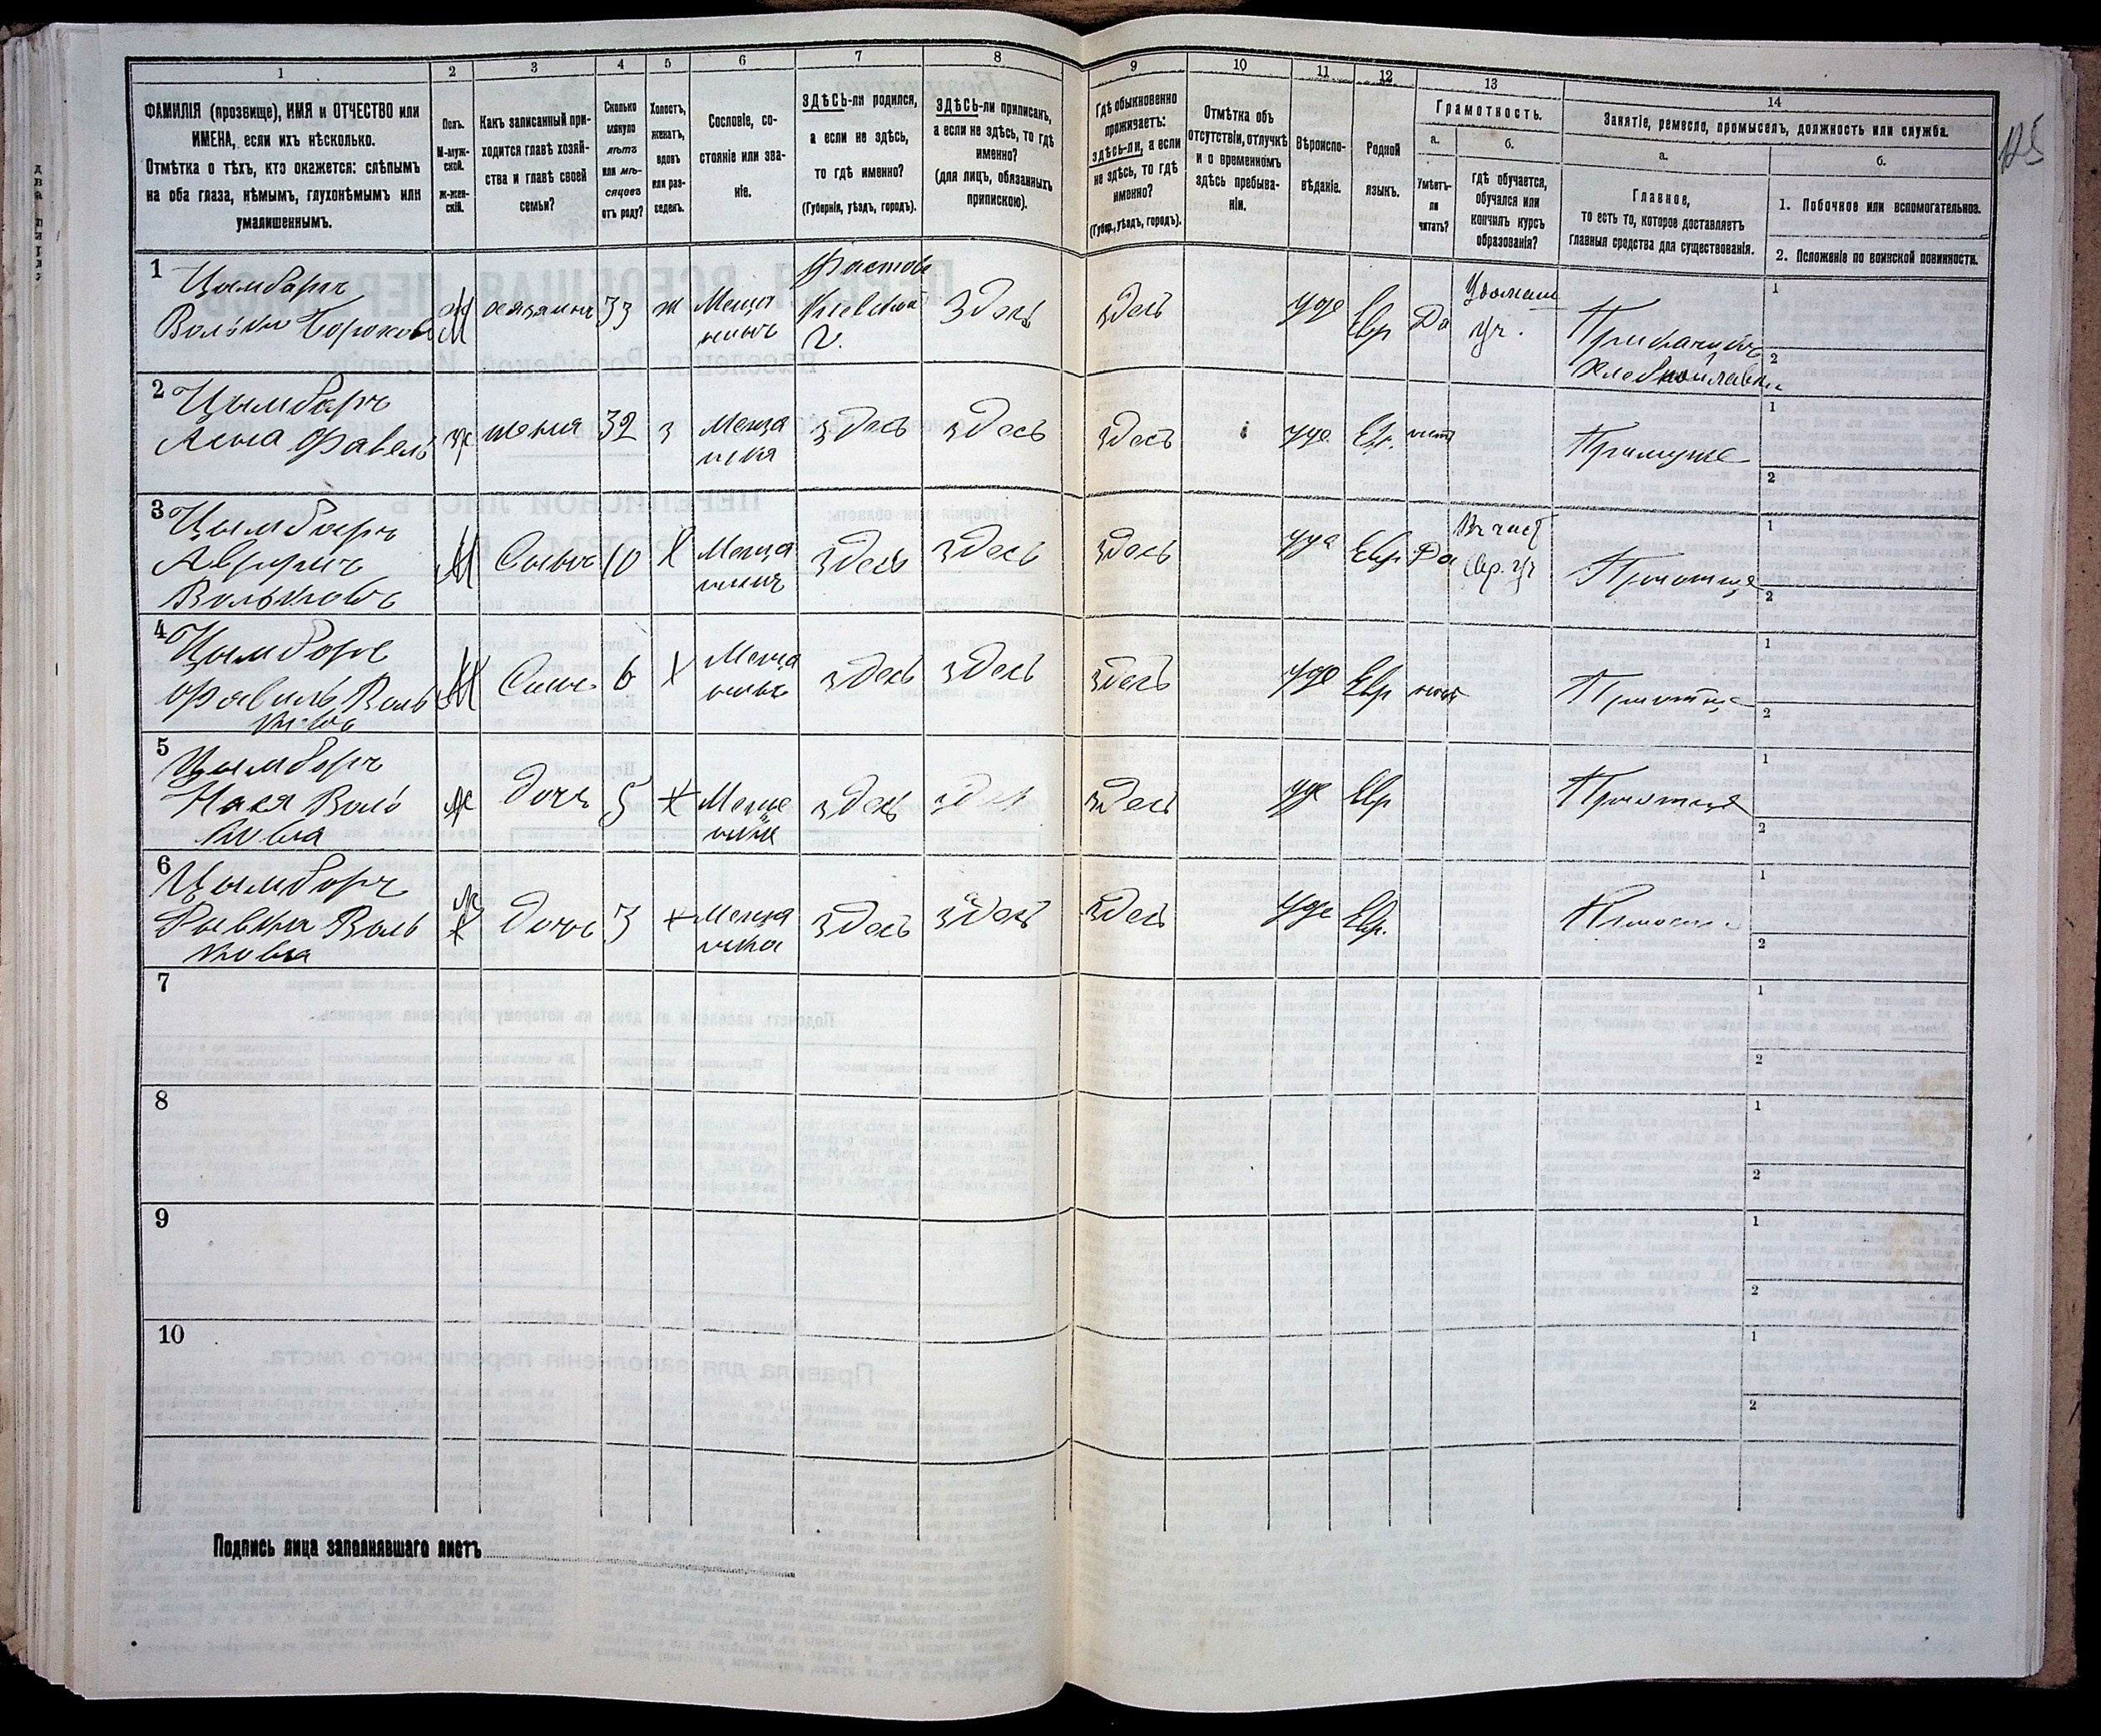 1 2 3 4 5 6 7 8 9 10 11 12 13 14
ФАМИЛІЯ (прозвище), ИМЯ и ОТЧЕСТВО или
ИМЕНА, если ихъ нѣсколько.
Отмѣтка о тѣхъ, кто окажется: слѣпымъ
на оба глаза, нѣмымъ, глухонѣмымъ или
умалишеннымъ.
Полъ.
М-муж-
ской.
ж-жен-
скій.
Какъ записанный при-
ходится главѣ хозяй-
ства и главѣ своей
семьи?
Сколько
минуло
лѣтъ
или мѣ-
сяцевъ
отъ роду?
Холостъ,
женатъ,
вдовъ
или раз-
веденъ.
Сословіе, со-
стояніе или зва-
ніе.
ЗДѢСЬ-ли родился,
а если не здѣсь,
то гдѣ именно?
(Губернія, уѣздъ, городъ).
ЗДѢСЬ-ли приписанъ,
а если не здѣсь, то гдѣ
именно?
(для лицъ, обязанныхъ
припискою).
Гдѣ обыкновенно
проживаетъ:
здѣсь-ли, а если
не здѣсь, то гдѣ
именно?
(Губер., уѣздъ, городъ).
Отмѣтка объ
отсутствіи, отлучкѣ
и о временномъ
здѣсь пребыва-
ніи.
Вѣроиспо-
вѣданіе.
Родной
языкъ.
Грамотность.
а.
Умѣетъ-
ли
читать?
б.
гдѣ обучается,
обучался или
кончилъ курсъ
образованія?
Занятіе, ремесло, промыселъ, должность или служба.
а.
Главное,
то есть то, которое доставляетъ
главныя средства для существованія.
б.
1. Побочное или вспомогательное.
2. Положеніе по воинской повинности.
125
1
Цымбаръ
Вольки Борохов
М хозяинъ 33 ж Меща
нинъ
Фастов
Кіевской
г.
Здесь здесь Іуде Евр Да
Уч.
Приказчикъ
1
2
2
Цымбаръ
ж жена 32 з Меща
нка
здесь здесь здесь Іуде Евр. нет
При муже
1
2
3
Цымбаръ
Аврумъ
Вольковъ
М Сынъ 10 Х Меща
нинъ
здесь здесь здесь Іуде Евр Да
Въ част
Евр. Уч
При отце
1
2
4
Цымбаръ
Фавель Воль
ковъ
М Сынъ 6 Х Меща
нинъ
здесь здесь здесь Іуде Евр нетъ
При отце
1
2
5
Цымбаръ
Хася Воль
кова
ж дочь 5 х Меща
нка
здесь здесь здесь Іуде Евр
При отце
1
2
6
Цымбаръ
Рывка Воль
кова
ж дочь 3 х Меща
нка
здесь здесь здесь Іуде Евр.
При отце
1
2
7
1
2
8
1
2
9
1
2
10
1
2
Подпись лица заполнявшаго листъ